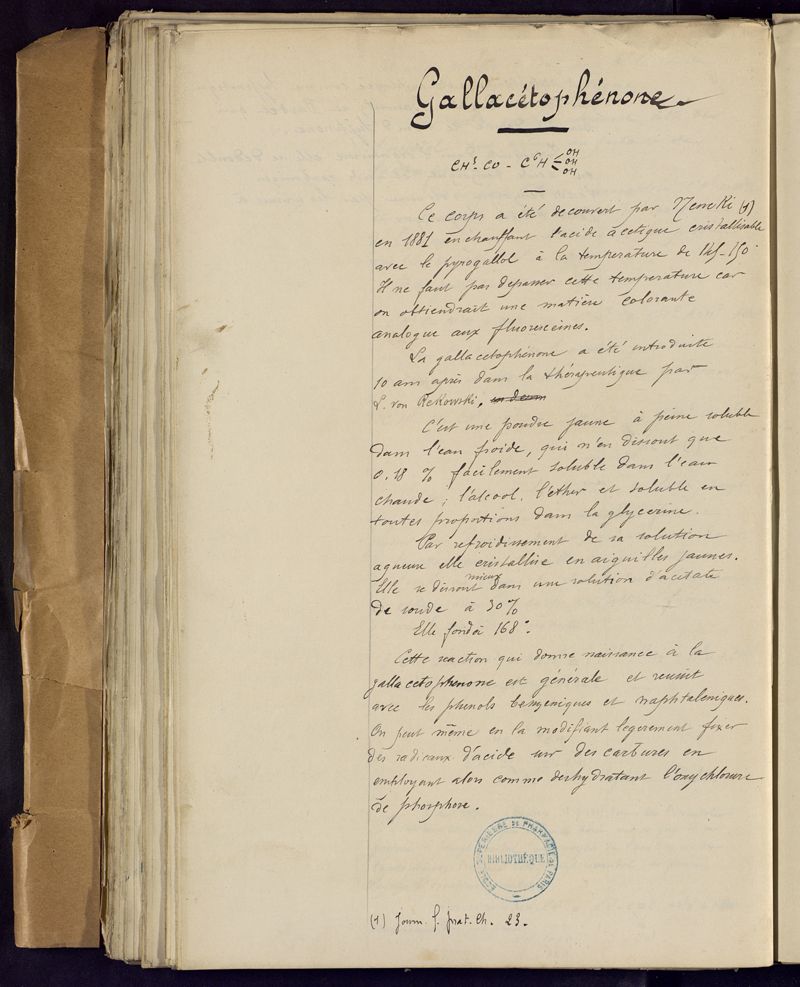 Gallacétophénone
CH³. CO - C⁶H² < OH OH OH
Ce corps a été decouvert par Nencki (1)
en 1881 en chauffant l'acide acétique cristallisable
avec le pyrogallol à la temperature de 145-150°
Il ne faut pas depasser cette temperature car
on obtiendrait une matière colorante
analogue aux fluoresceines.
La gallacetophénone a été introduite
10 ans après dans la thérapeutique par
L. von Rekowski,
C'est une poudre jaune à peine soluble
dans l'eau froide, qui n'en dissout que
0.18 % facilement soluble dans l'eau
chaude ; l'alcool. l'éther et soluble en
toutes proportions dans la glycerine.
Par refroidissement de sa solution
aqueuse elle cristallise en aiguilles jaunes.
Elle se dissout mieux dans une solution d'acétate
de soude à 30 %
Elle fond à 168°.
Cette reaction qui donne naissance à la
gallacetophenone est générale et reussit
avec les phenols benzeniques et naphtaleniques.
On peut même en la modifiant legerement fixer
des radicaux d'acide sur des carbures en
employant alors comme deshydratant l'oxychlorure
de phosphore.
ECOLE SUPÉRIEURE DE PHARMACIE DE PARIS
BIBLIOTHÈQUE
(1) Journ. f. prat. Ch. 23.